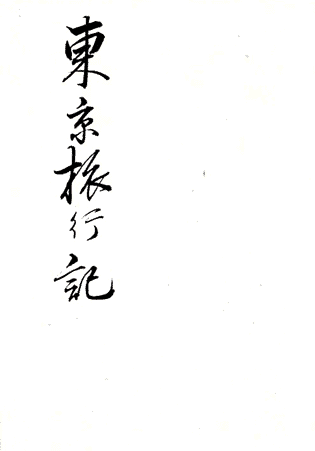 東京旅行記